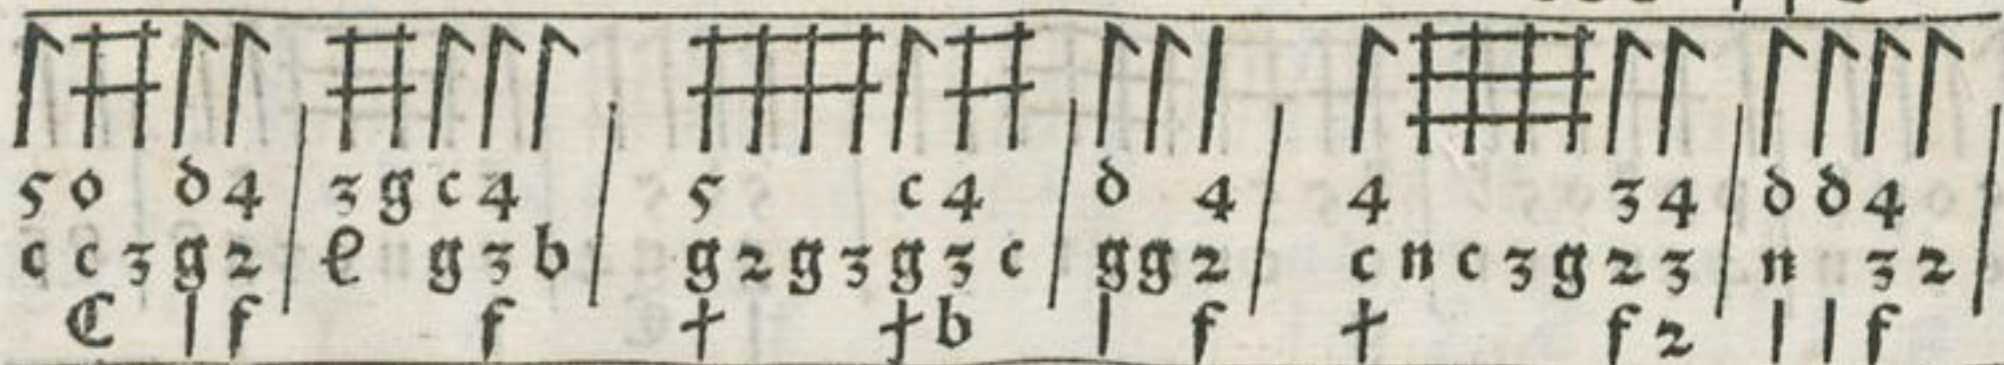 5 o d 4 | 3 g c 4 | 5 c 4 | d 4 | 4 3 4 | d d 4 |
c c 3 g 2 | e g 3 b | g 2 g 3 g 3 c | g g 2 | c n c 3 g 2 3 | n 3 2 |
C | f f † † b | f † f 2 | | f